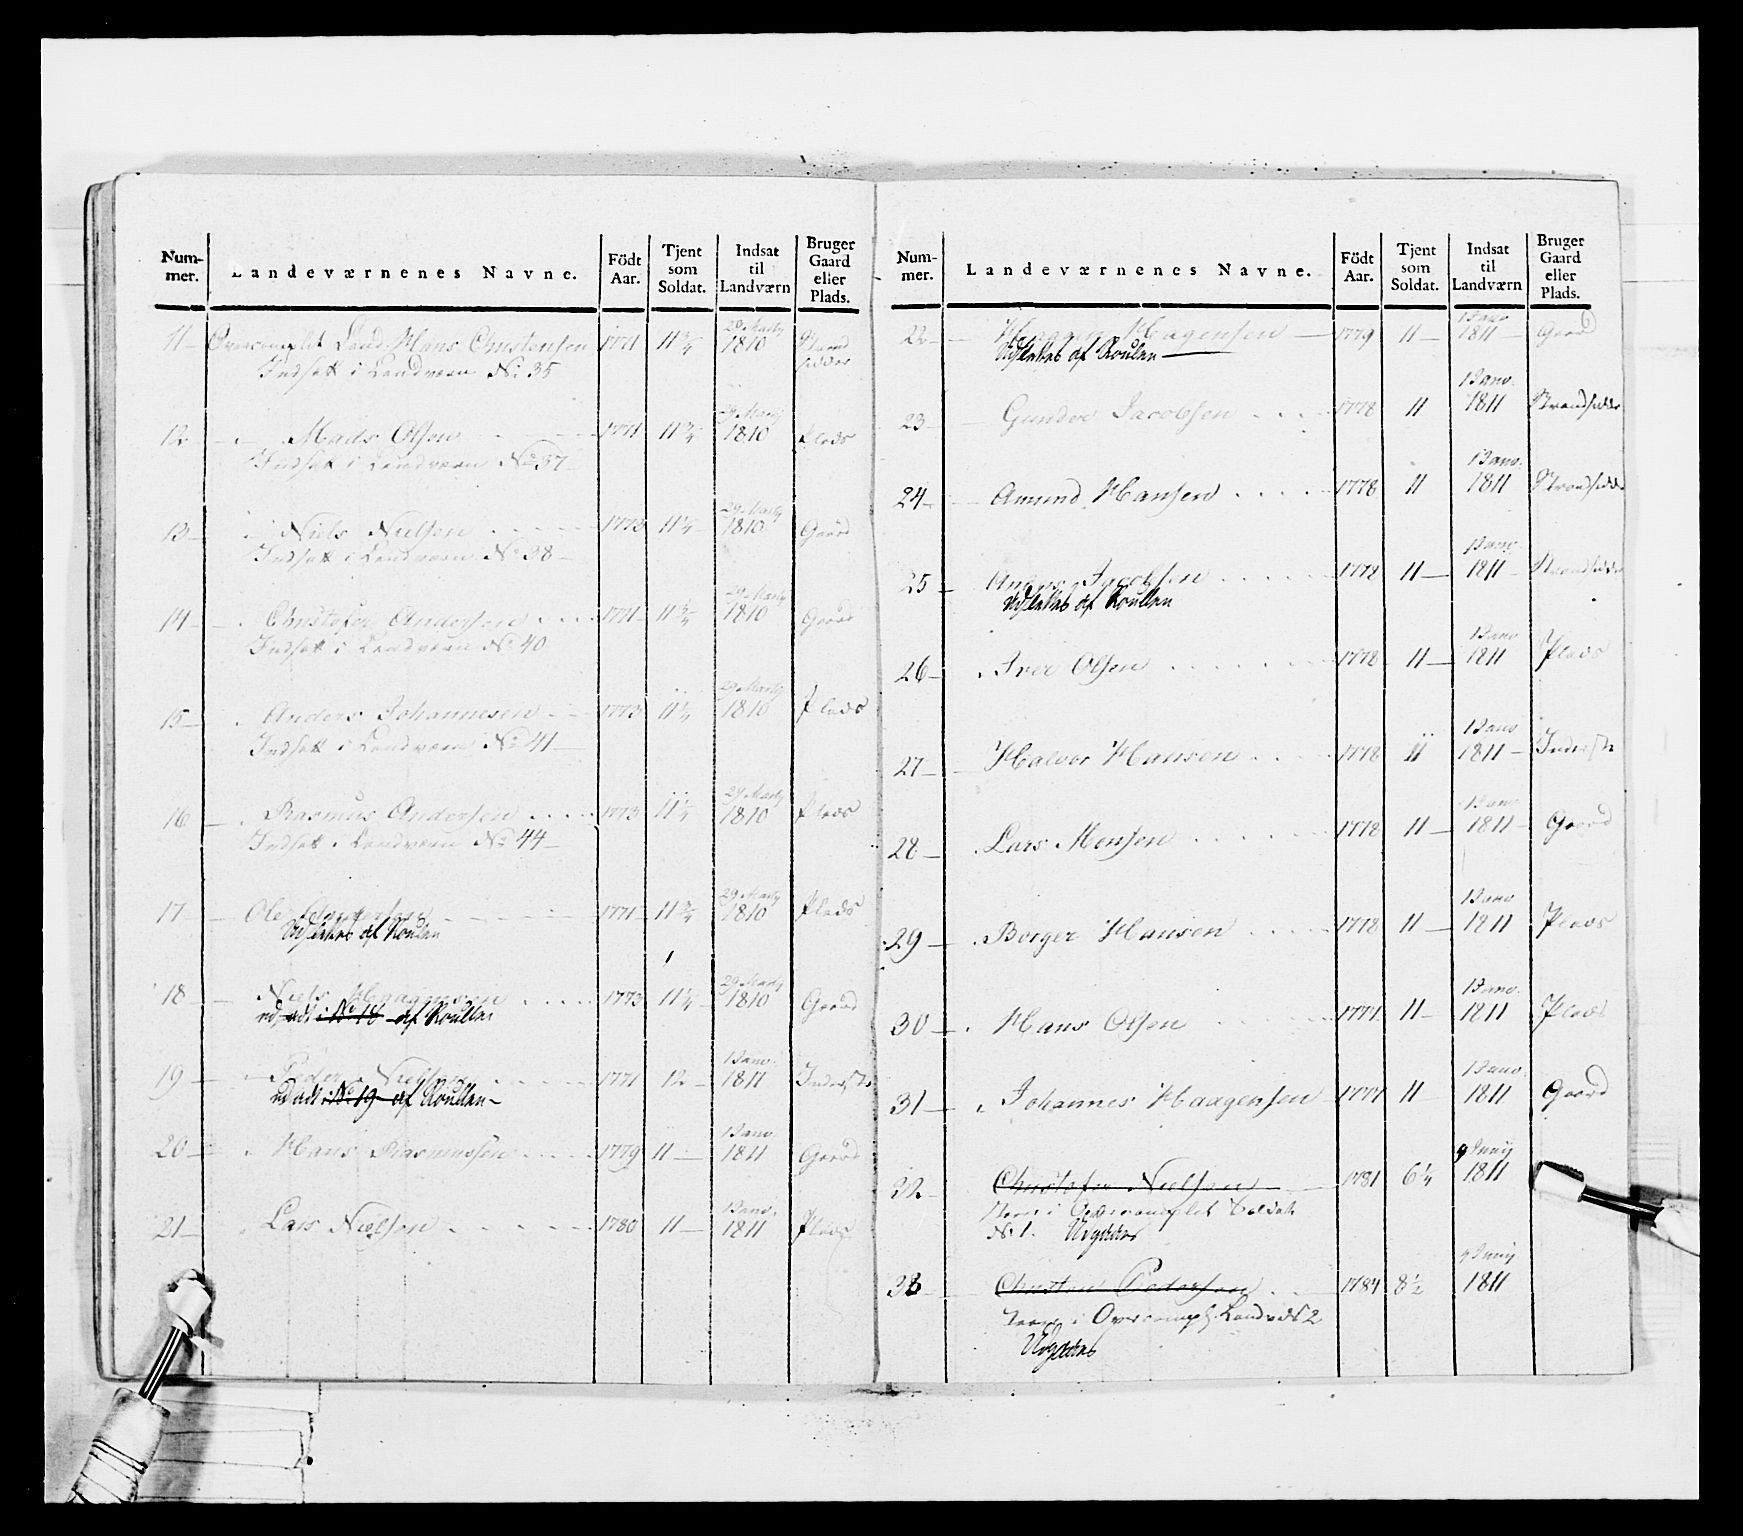 Num-
mer.
Landeværnenes Navne.
Födt
Aar.
Tjent
som
Soldat.
Indsat
til
Landværn
Bruger
Gaard
eller
Plads.
11 Overcomplet Land. Hans Christensen 1771 11 3/4 29 Martz 1810 Strandsidder
Indsatt i Landværn No 35
12 Mads Olsen 1771 11 3/4 29 Martz 1810 Plads
Indsatt i Landværn No 37
13 Niels Nielsen 1773 11 1/4 29 Martz 1810 Gaard
Indsatt i Landværn No 38
14 Christofer Andersen 1771 11 3/4 29 Martz 1810 Gaard
Indsatt i Landværn No 40
15 Anders Johannesen 1773 11 1/4 29 Martz 1810 Plads
Indsatt i Landværn No 41
16 Rasmus Andersen 1773 11 1/4 29 Martz 1810 Plads
Indsatt i Landværn No 44
17 Ole 1771 11 3/4 29 Martz 1810 Plads
Udslettes af Roullen
18 Niels Haagensen 1773 11 1/4 29 Martz 1810 Gaard
i No 18 af Roullen
19 Peder Nielsen 1771 12 1 Janv. 1811 Inderste
i No 19 af Roullen
20 Hans Rasmussen 1779 11 1 Janv. 1811 Gaard
21 Lars Nielsen 1780 11 1 Janv. 1811 Plads
Num-
mer.
Landeværnenes Navne.
Födt
Aar.
Tjent
som
Soldat.
Indsat
til
Landværn
Bruger
Gaard
eller
Plads.
22 Haagen Haagensen 1779 11 1 Janv 1811 Gaard
Udslettes af Roullen
23 Gunder Jacobsen 1778 11 1 Janv. 1811 Strandsidder
24 Amund Hansen 1778 11 1 Janv. 1811 Strandsidder
25 Anders Jacobsen 1778 11 1 Janv. 1811 Strandsidder
Udslettes af Roullen
26 Iver Olsen 1778 11 1 Janv 1811 Plads
27 Halvor Hansen 1778 11 1 Janv 1811 Inderste
28 Lars Monsen 1778 11 1 Janv 1811 Gaard
29 Borger Hansen 1778 11 1 Janv 1811 Plads
30 Hans Olsen 1777 11 1 Janv. 1811 Plads
31 Johannes Haagensen 1777 11 1 Janv. 1811 Gaard
32 Christofer Nielsen 1781 6 1/4 9 Junij 1811
i Overcomplet Soldat
No 1. Udgaaer
33 Christen Pedersen 1784 8 1/2 9 Junij 1811
i Overcompl. Landv No 2
Udgaaer